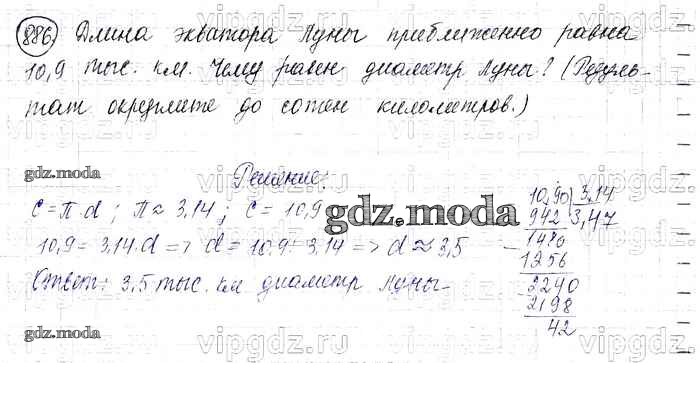 886. Длина экватора Луны приближенно равна
10,9 тыс. км. Чему равен диаметр Луны? (Резуль-
тат округлите до сотен километров.)
gdz.moda
Решение:
C = π d ; π ≈ 3,14 ; C = 10,9
gdz.moda
10,9 = 3,14·d => d = 10,9 : 3,14 => d ≈ 3,5
Ответ: 3,5 тыс. км диаметр Луны.
gdz.moda
10,90 3,14
942 3,47
1480
1256
2240
2198
42
vipgdz.ru vipgdz.ru vipgdz.ru
vipgdz.ru vipgdz.ru vipgdz.ru
vipgdz.ru vipgdz.ru vipgdz.ru